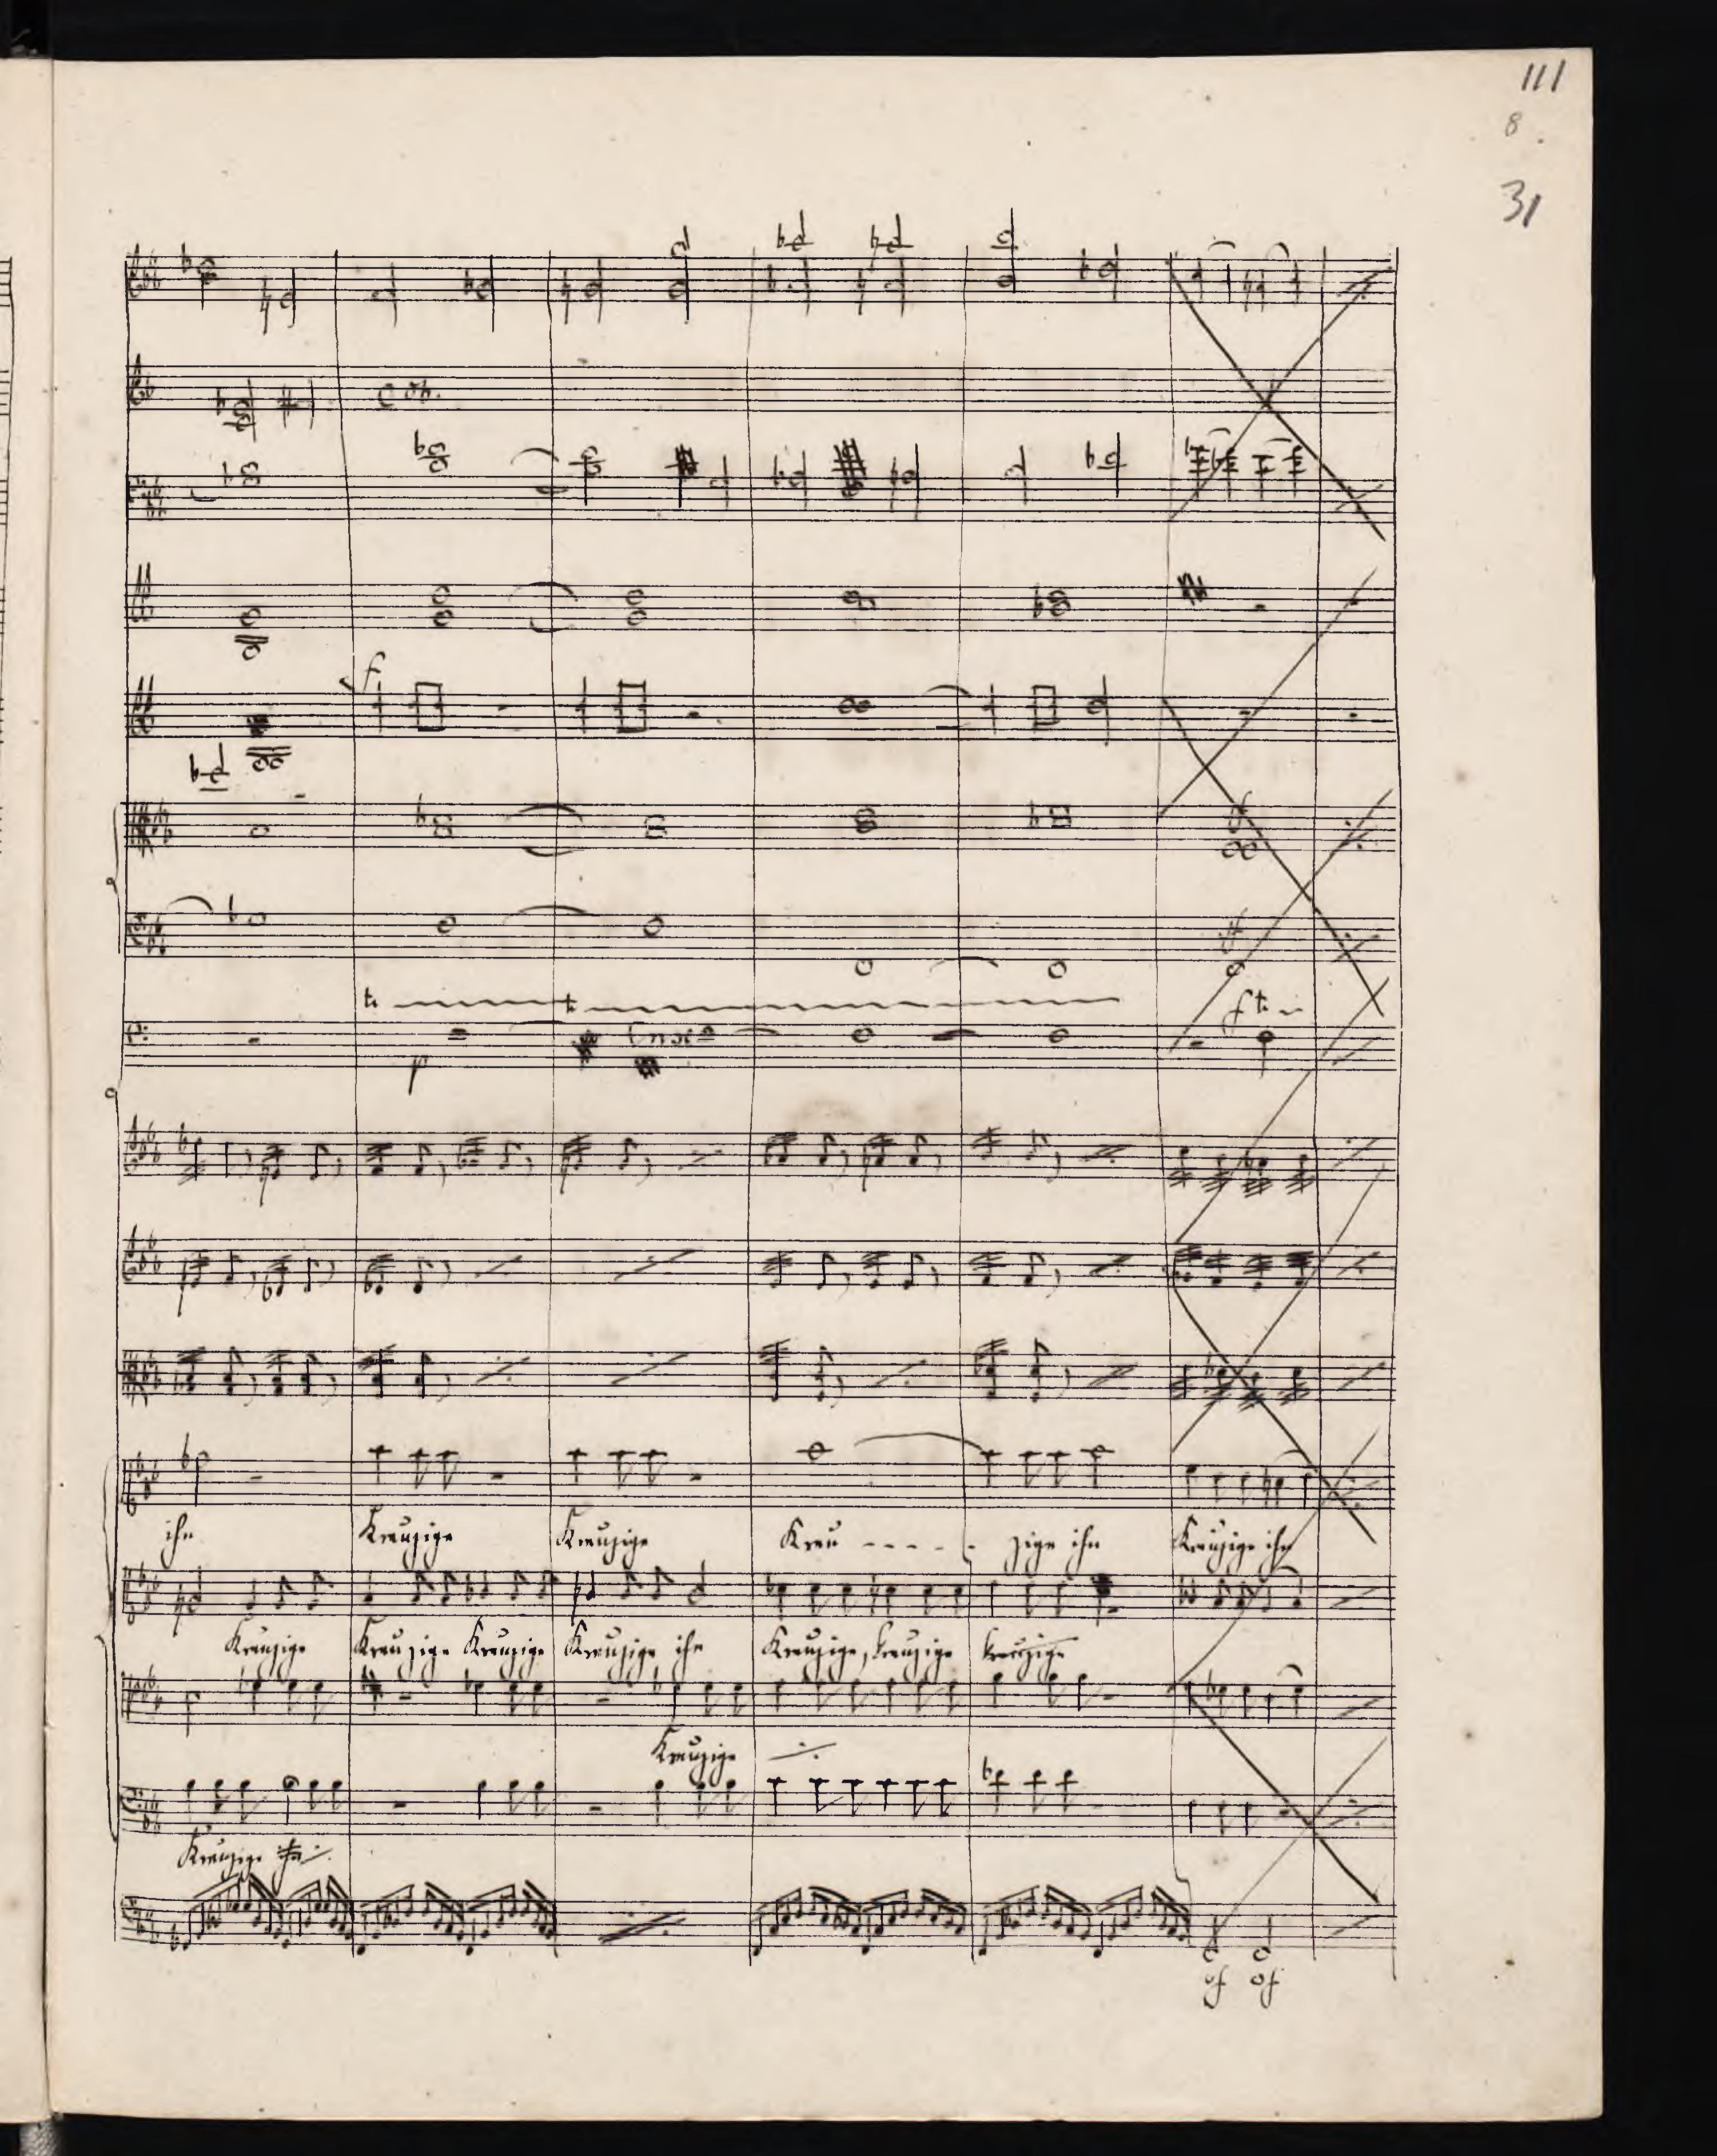 111
8.
31
C ob.
f
tr
tr
p
cresc
f tr
ihn Kreuzige Kreuzige Kreu - - - - - zige ihn Kreuzige ihn
Kreuzige Kreuzige Kreuzige Kreuzige ihn Kreuzige, kreuzige kreuzige
Kreuzige
Kreuzige ihn
sf sf